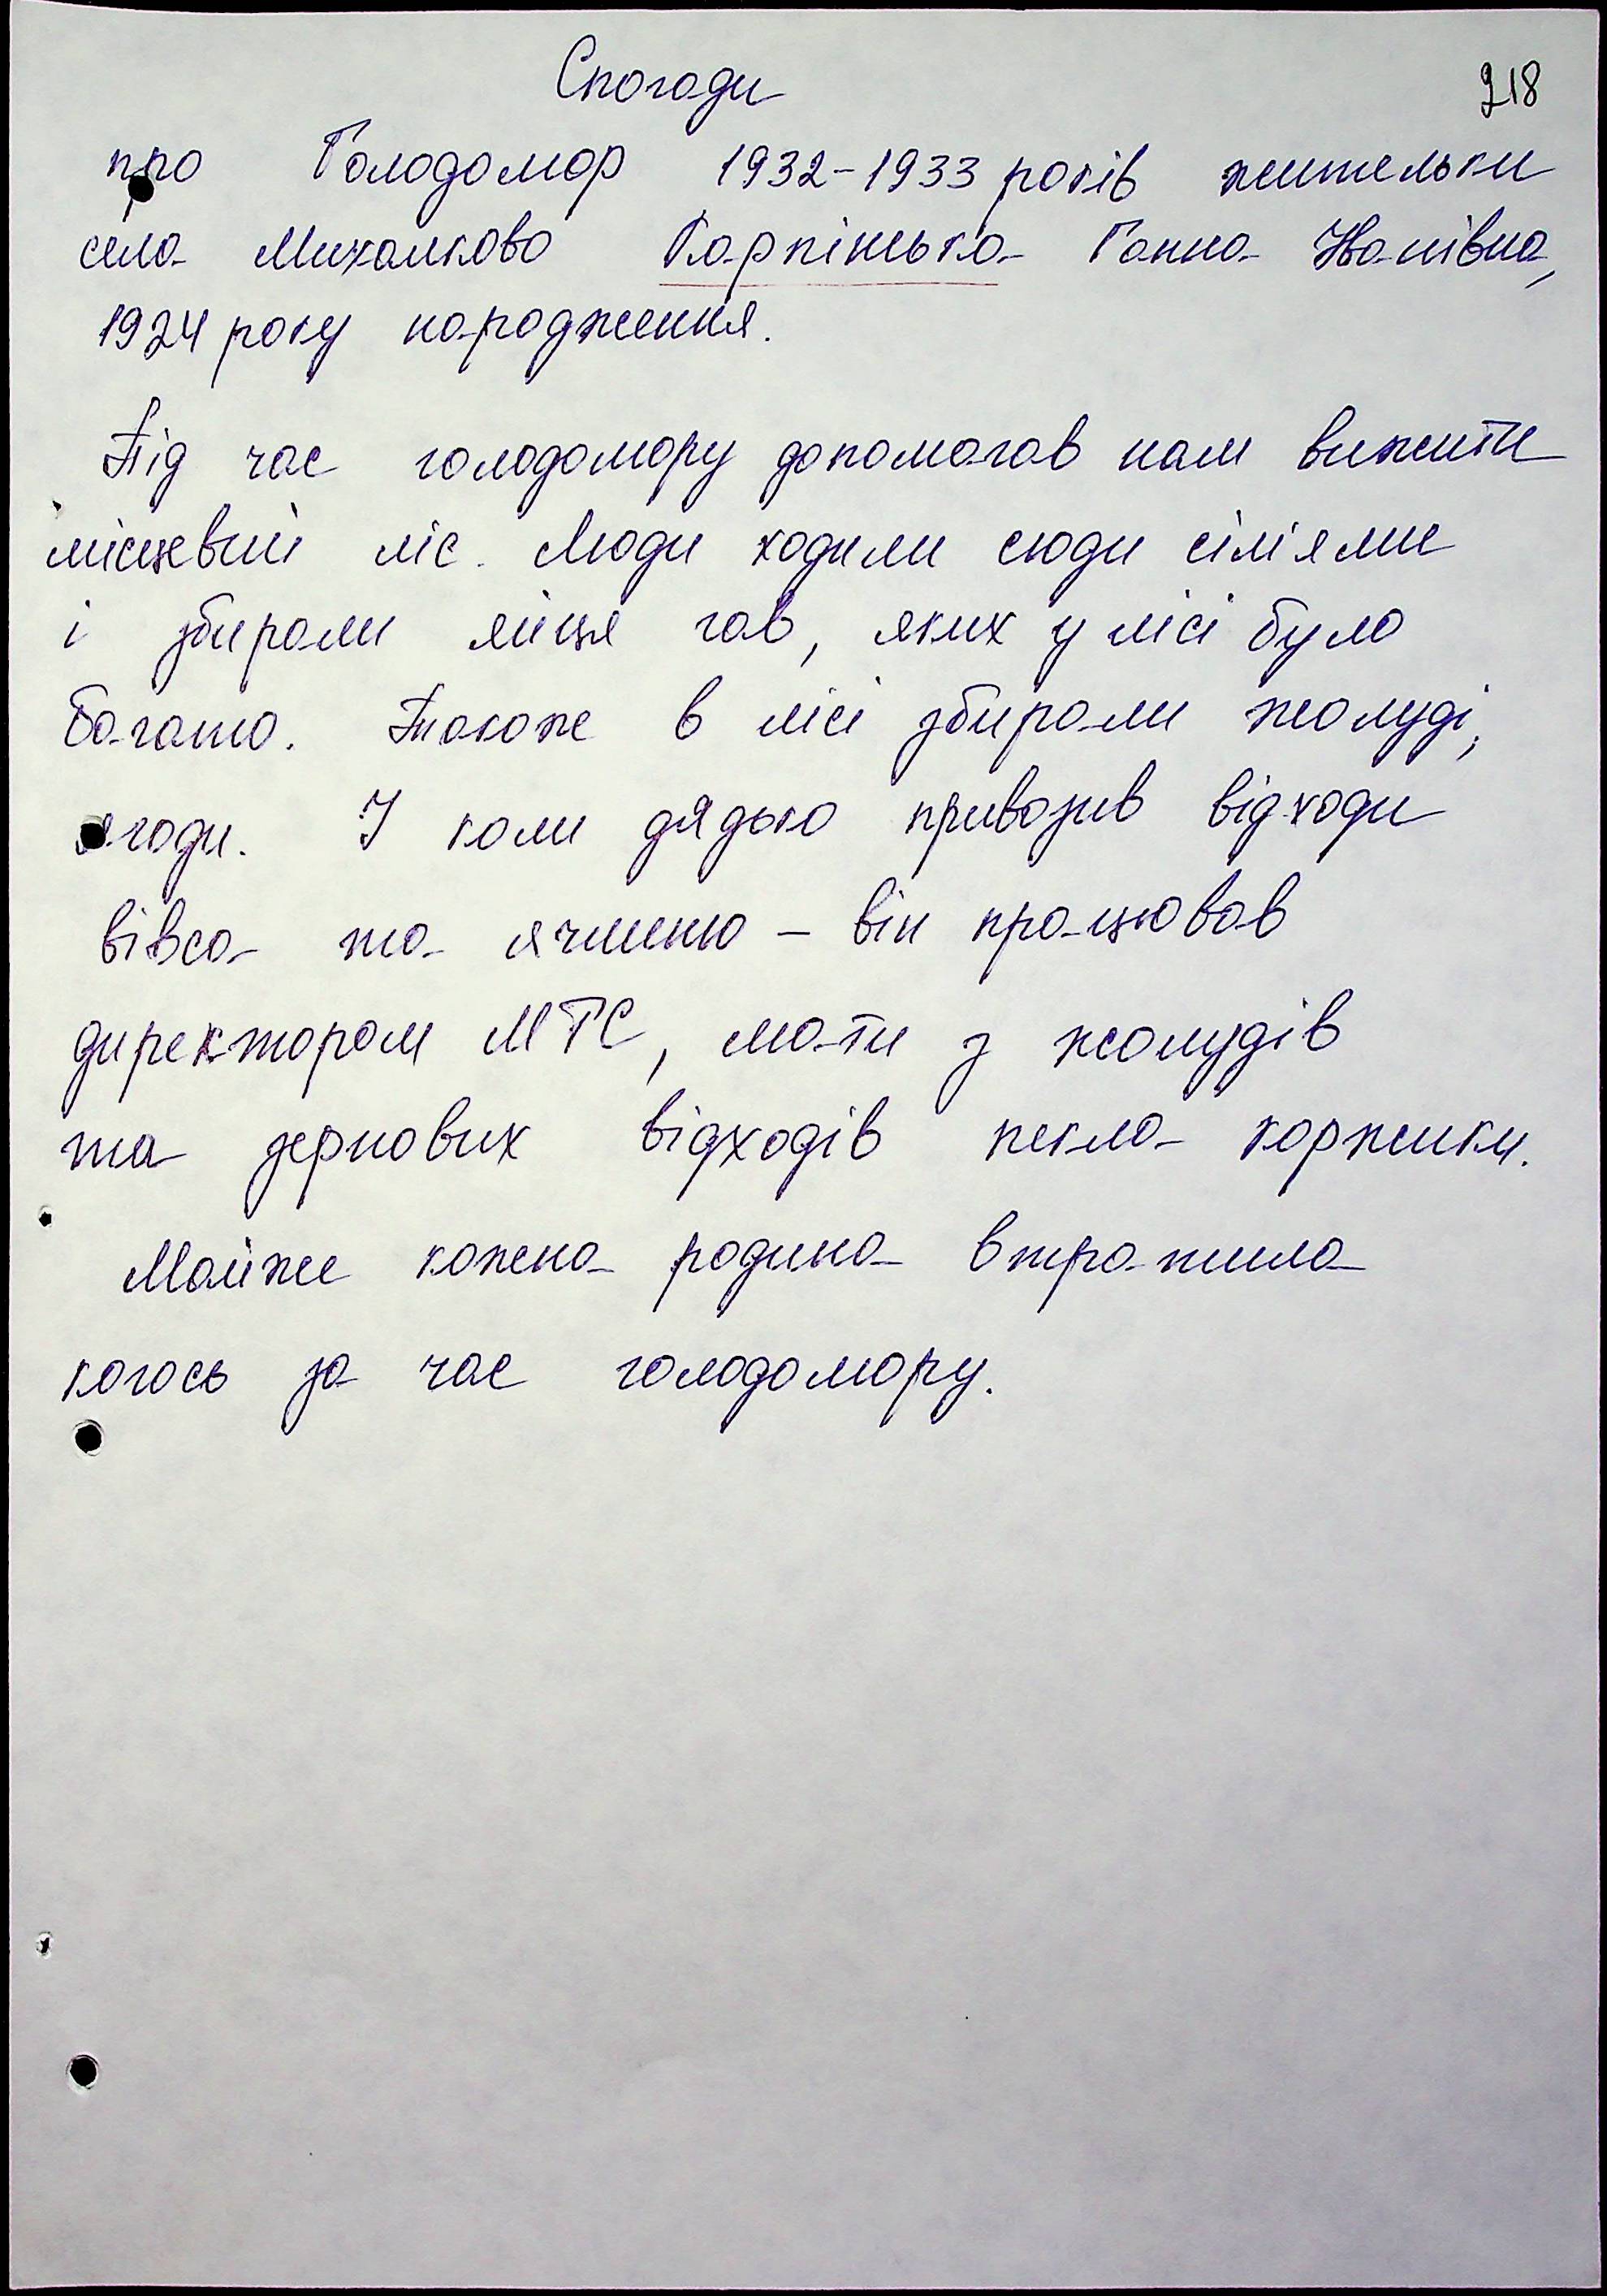 Спогоди
218
про Голодомор 1932-1933 років жительки
села Михалково Карпінська Ганна Іванівна,
1924 року народження.
Під час голодомору допомагав нам вижити
місцевий ліс. Люди ходили сюди сім'ями
і збирали яйця гав, яких у лісі було
багато. Також в лісі збирали жолуді,
ягоди. І коли дядько привозив відходи
вівса та ячменю – він працював
директором МТС, мати з жолудів
та зернових відходів пекла коржики.
Майже кожна родина втратила
когось за час голодомору.